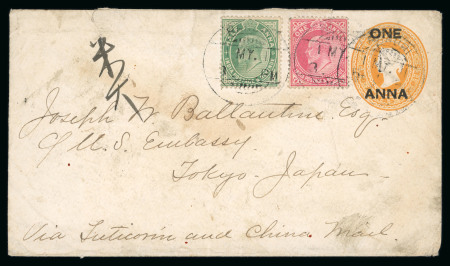 ONE
ANNA
米
大
Joseph W. Ballantine Esq.
c/o U.S. Embassy.
Tokyo Japan.
Via Tuticorin and China Mail.